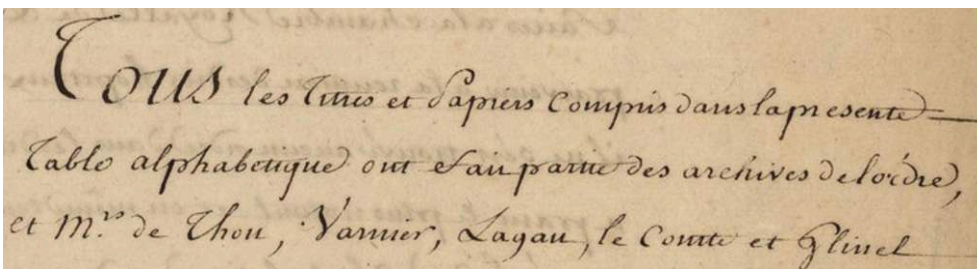 Tous les Titres et Papiers Compris dans la presente
Table alphabetique ont fait partie des archives de l'ordre,
et M.rs de Thou, Varnier, Lagau, le Comte et